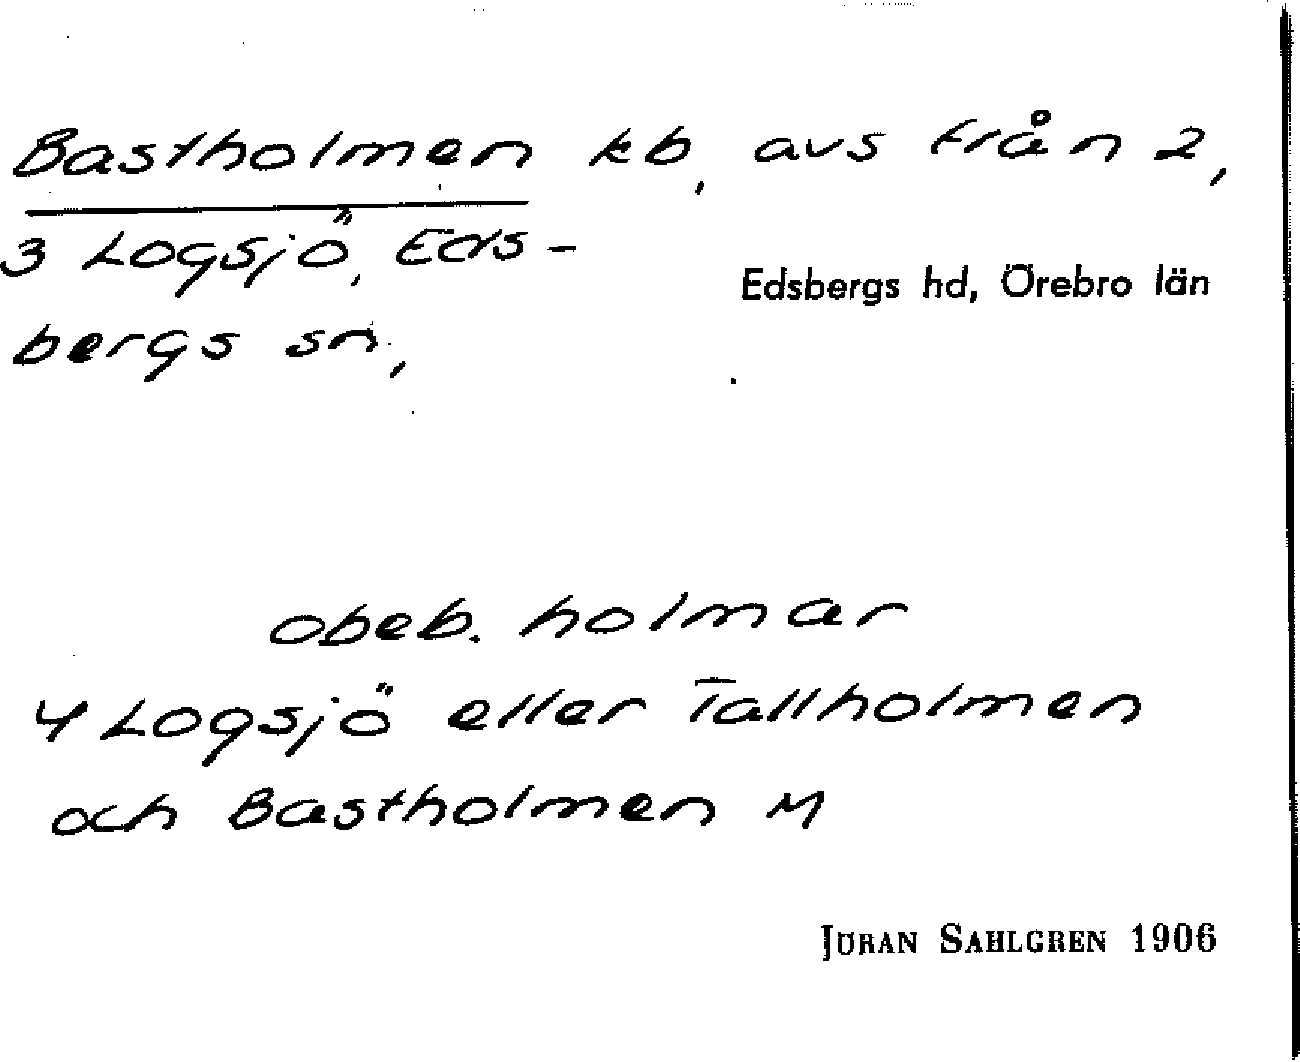 Bastholmen kb, avs från 2,
3 Logsjö, Eds-
Edsbergs hd, Örebro län
bergs sn,
obeb. holmar
4 Logsjö eller Tallholmen
och Bastholmen M
JÖRAN SAHLGREN 1906